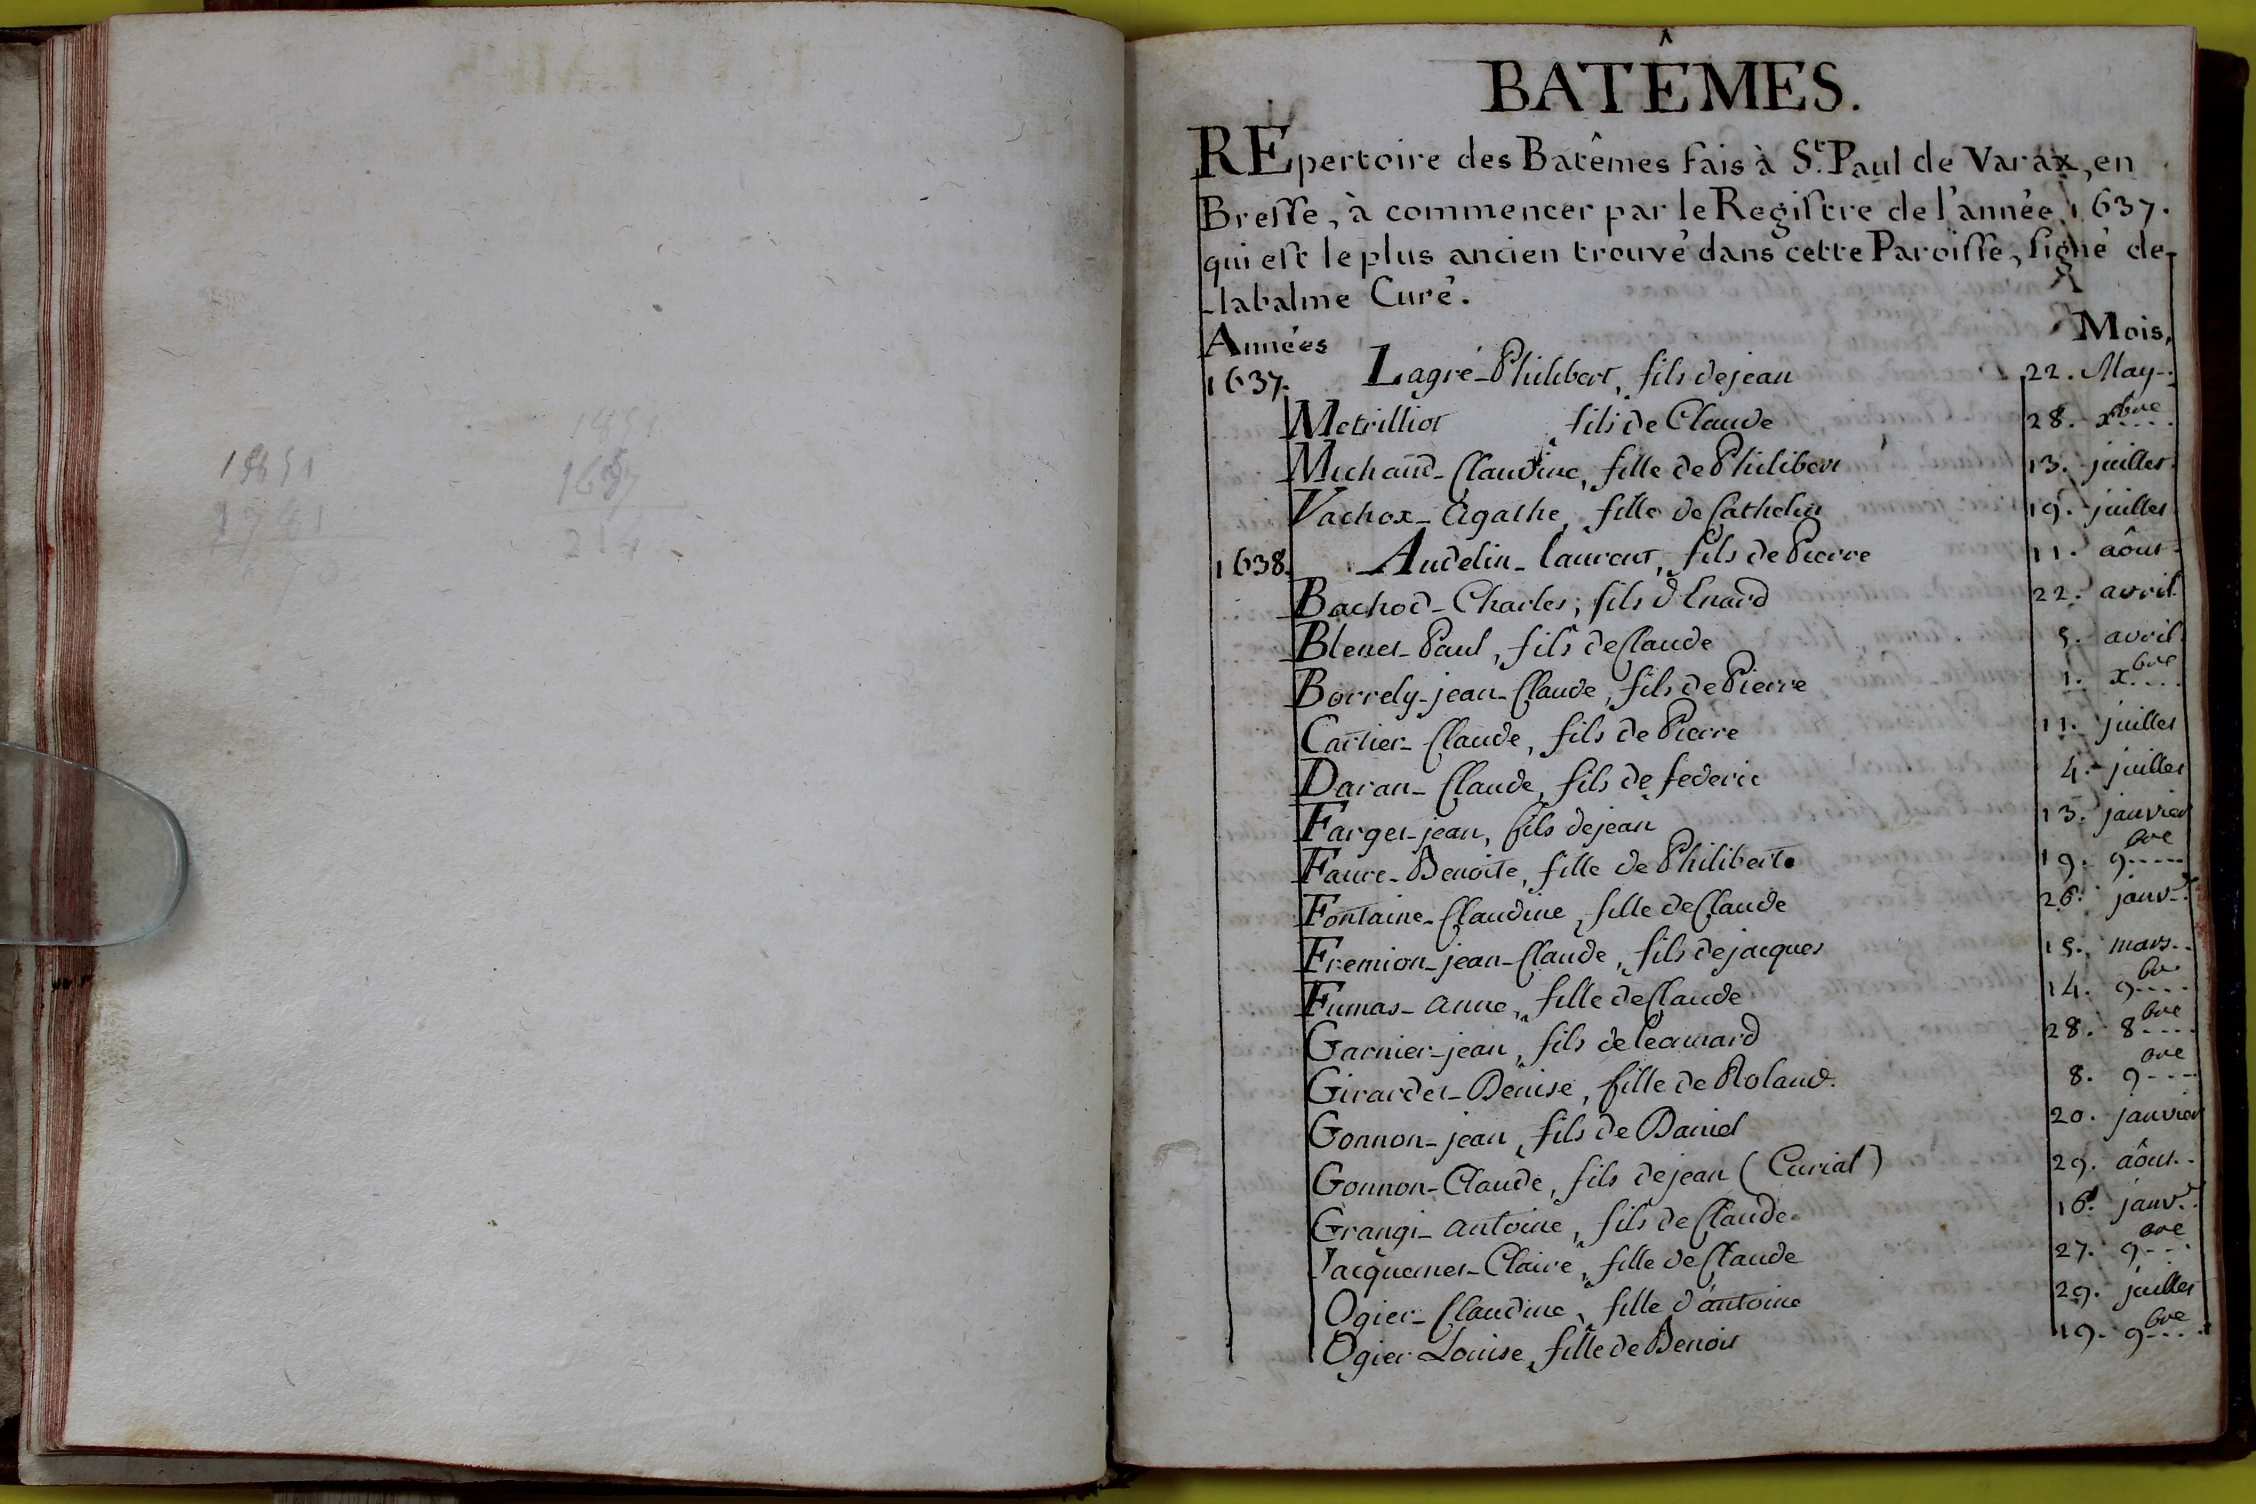 1851
1851
1637
214
BATÊMES.
REpertoire des Batêmes fais à St. Paul de Varax, en
Bresse, à commencer par le Registre de l'année 1637.
qui est le plus ancien trouvé dans cette Paroisse, signé de-
-labalme Curé.
Années Mois.
1637. Lagré-Philibert, fils de jean 22. May..
Metrilliot fils de Claude 28. xbre....
Michaud-Claudine, fille de Philibert 13. juillet.
Vachox-Agathe, fille de Cathelin 19. juillet
1638. Audelin-laurent, fils de Pierre 11. aôut.
Bachod-Charles, fils d'Enard 22. avril.
Blenet-Paul, fils de Claude 5. avril.
Borrely-jean-Claude, fils de Pierre 1. xbre....
Cartier-Claude, fils de Pierre 11. juillet
Daran-Claude, fils de federic 4. juillet
Farget-jean, fils de jean 13. janvier
Faure-Benoite, fille de Philibert. 19. 9bre.....
Fontaine-Claudine, fille de Claude 26. janvr.
Fremion-jean-Claude, fils de jacques 15. mars..
Fumas-anne, fille de Claude 14. 9bre....
Garnier-jean, fils de Leonnard 28. 8bre....
Girardet-Denise, fille de Roland. 8. 9bre....
Gonnon-jean, fils de Daniel 20. janvier
Gonnon-Claude, fils de jean (Curial) 29. aôut..
Grangi-antoine, fils de Claude. 16. janvr.
Jacquemet-Claire, fille de Claude 27. 9bre...
Ogier-Claudine, fille d'antoine 29. juillet
Ogier-Louise, fille de Benoit 19. 9bre....